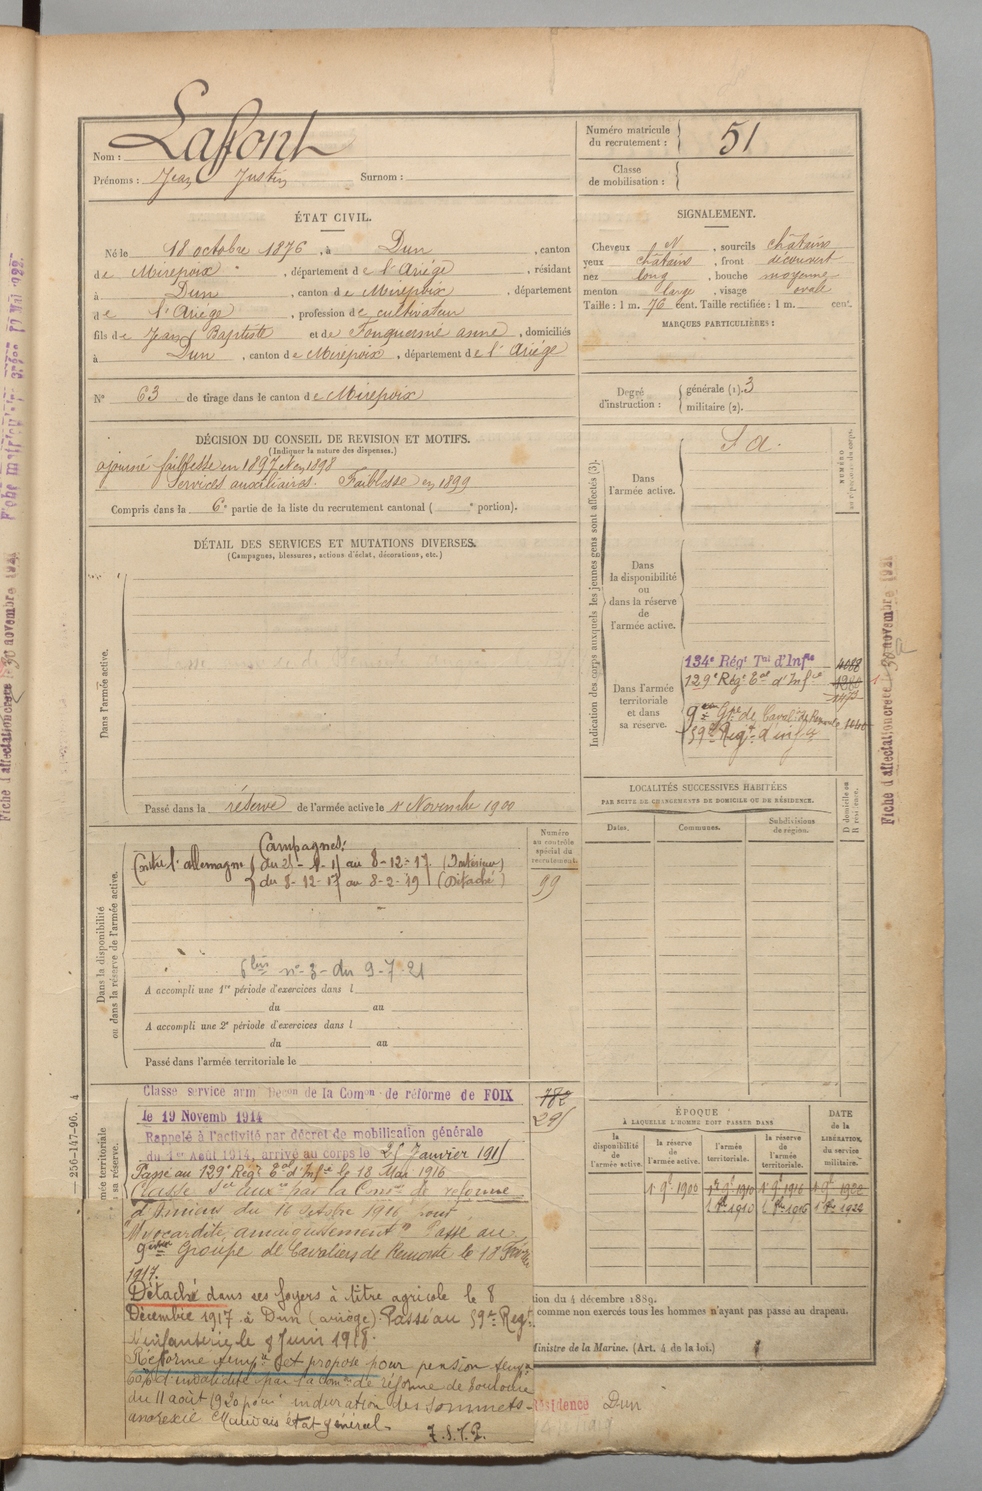 Nom : Laffont
Prénoms : Jean Justin Surnom :
Numéro matricule du recrutement : 51
Classe de mobilisation :
ÉTAT CIVIL.
Né le 18 octobre 1876, à Dun, canton
de Mirepoix, département de l'Ariège, résidant
à Dun, canton de Mirepoix, département
de l'Ariège, profession de cultivateur
fils de Jean Baptiste et de anne, domiciliés
à Dun, canton de Mirepoix, département de l'Ariège
SIGNALEMENT.
Cheveux N, sourcils châtains
yeux châtains, front découvert
nez long, bouche moyenne
menton large, visage ovale
Taille : 1 m. 76 cent. Taille rectifiée : 1 m. cent.
MARQUES PARTICULIÈRES :
N° 63 de tirage dans le canton de Mirepoix
Degré d'instruction : générale (1). 3
militaire (2).
DÉCISION DU CONSEIL DE REVISION ET MOTIFS.
(Indiquer la nature des dispenses.)
ajourné faiblesse en 1897 et en 1898
Services auxiliaires. Faiblesse en 1899
Compris dans la 6e partie de la liste du recrutement cantonal ( e portion).
DÉTAIL DES SERVICES ET MUTATIONS DIVERSES.
(Campagnes, blessures, actions d'éclat, décorations, etc.)
Dans l'armée active.
Passé dans la réserve de l'armée active le 1r Novembre 1900
Indication des corps auxquels les jeunes gens sont affectés (3).
NUMÉRO
Dans l'armée active.
S a.
Dans la disponibilité ou dans la réserve de l'armée active.
Dans l'armée territoriale et dans sa réserve.
134e Régt Tal d'Infie
129e Régt Eal d'Infie
9eme Gpe de Caval. de Remonte
59e Régt d'infie
LOCALITÉS SUCCESSIVES HABITÉES
PAR SUITE DE CHANGEMENTS DE DOMICILE OU DE RÉSIDENCE.
Dates. Communes. Subdivisions de région. D domicile ou R résidence.
Dans la disponibilité ou dans la réserve de l'armée active.
Numéro au contrôle spécial du recrutement.
99
Campagnes:
Contre l'allemagne du 25-1-15 au 8-12-17 (Intérieur)
du 8-12-17 au 8-2-19 (Détaché)
n° 3 - du 9-7-21
A accompli une 1re période d'exercices dans l
du au
A accompli une 2e période d'exercices dans l
du au
Passé dans l'armée territoriale le
Classé service armé Décon de la Comon de réforme de FOIX
le 19 Novemb 1914
Rappelé à l'activité par décret de mobilisation générale
du 1er Août 1914, arrivé au corps le 25 Janvier 1915
Passé au 129e Régt Eal d'Infie le 18 Mai 1916
Classé Sce auxre par la Comon de réforme
d'Amiens du 16 Octobre 1916 pour
"Myocardite, amaigrissement" Passé au
9eme Groupe de Cavaliers de Remonte le 18
1917.
Détaché dans ses foyers à titre agricole le 8
Décembre 1917 à Dun (ariège). Passé au 59e Régt
d'infanterie le Juin 1918.
Réformé temp. et proposé pour pension temp.
d'invalidité par la comon de réforme de Toulouse
du 11 août 1920 pour induration des sommets -
anorexie Mauvais état général.
ÉPOQUE
À LAQUELLE L'HOMME DOIT PASSER DANS
la disponibilité de l'armée active. la réserve de l'armée active. l'armée territoriale. la réserve de l'armée territoriale.
DATE de la LIBÉRATION du service militaire.
1r 9e 1900 1r 9e 1910 1r 9e 1916 1r 9e 1922
tion du 4 décembre 1889.
comme non exercés tous les hommes n'ayant pas passé au drapeau.
Ministre de la Marine. (Art. 4 de la loi.)
Résidence Dun
256-147-96.
Fiche d'affectation créée le 30 novembre 1921